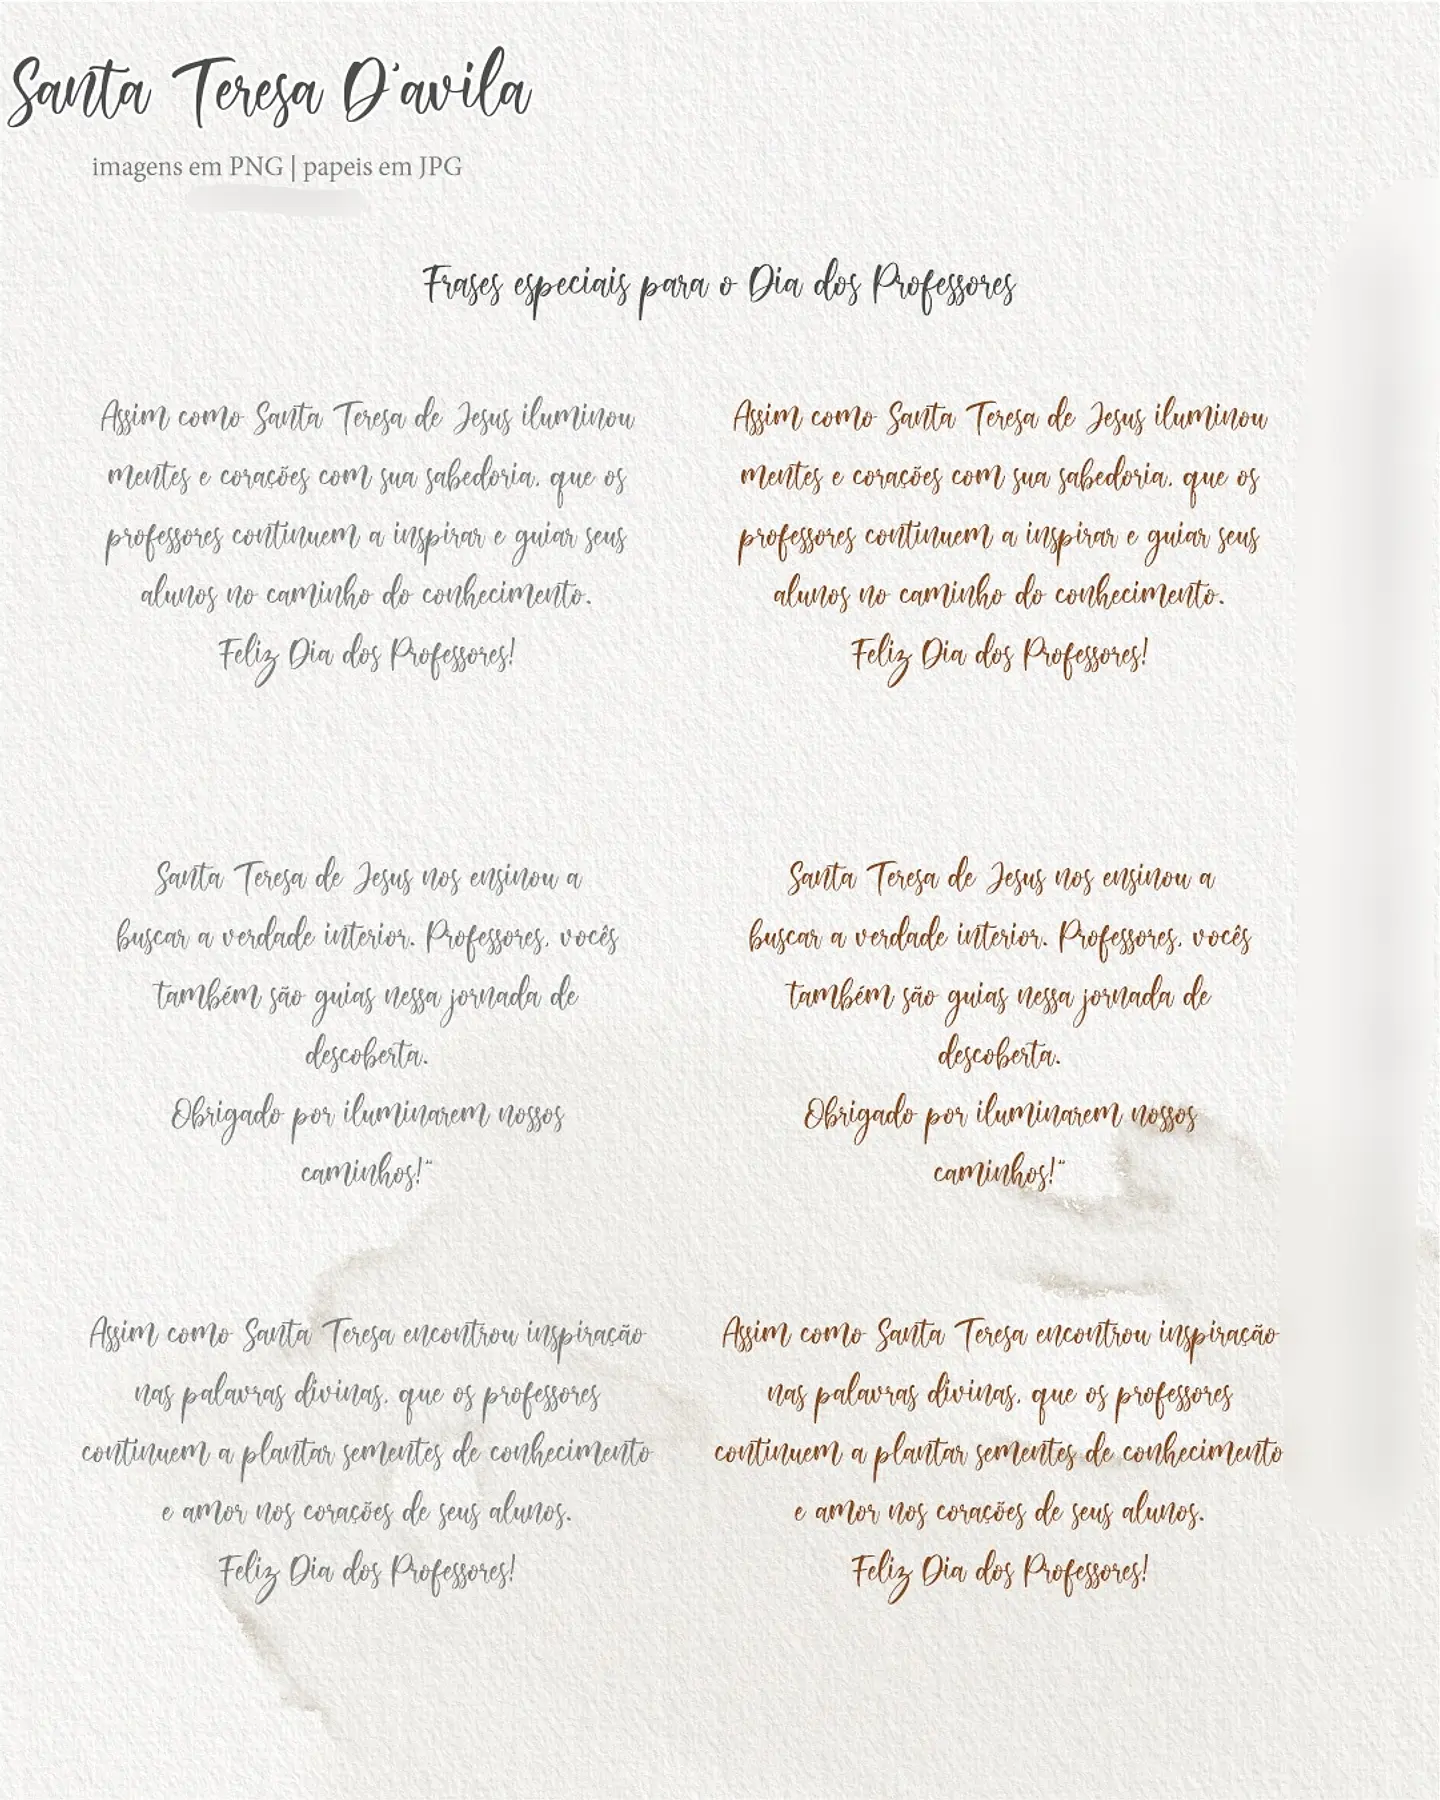 Santa Teresa D'avila
imagens em PNG | papeis em JPG
Frases especiais para o Dia dos Professores
Assim como Santa Teresa de Jesus iluminou
mentes e corações com sua sabedoria, que os
professores continuem a inspirar e guiar seus
alunos no caminho do conhecimento.
Feliz Dia dos Professores!
Assim como Santa Teresa de Jesus iluminou
mentes e corações com sua sabedoria, que os
professores continuem a inspirar e guiar seus
alunos no caminho do conhecimento.
Feliz Dia dos Professores!
Santa Teresa de Jesus nos ensinou a
buscar a verdade interior. Professores, vocês
também são guias nessa jornada de
descoberta.
Obrigado por iluminarem nossos
caminhos!"
Santa Teresa de Jesus nos ensinou a
buscar a verdade interior. Professores, vocês
também são guias nessa jornada de
descoberta.
Obrigado por iluminarem nossos
caminhos!"
Assim como Santa Teresa encontrou inspiração
nas palavras divinas, que os professores
continuem a plantar sementes de conhecimento
e amor nos corações de seus alunos.
Feliz Dia dos Professores!
Assim como Santa Teresa encontrou inspiração
nas palavras divinas, que os professores
continuem a plantar sementes de conhecimento
e amor nos corações de seus alunos.
Feliz Dia dos Professores!